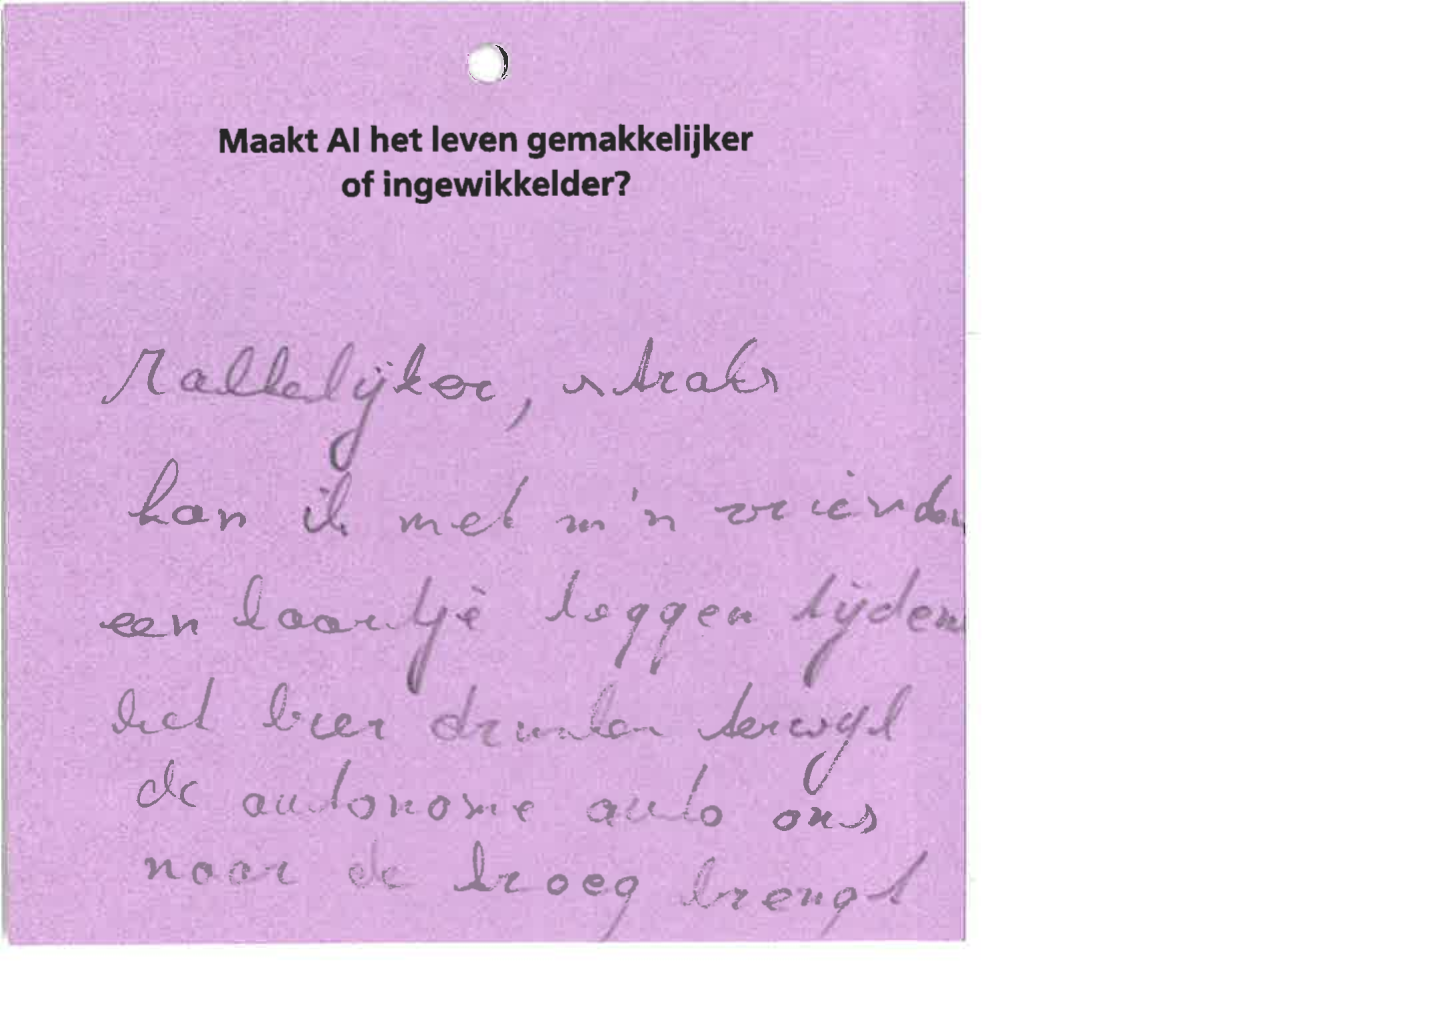 Maakt AI het leven gemakkelijker
of ingewikkelder?
Makkelijker, straks
kan ik met m'n vrienden
een kaartje leggen tijdens
het bier drinken terwijl
de autonome auto ons
naar de kroeg brengt